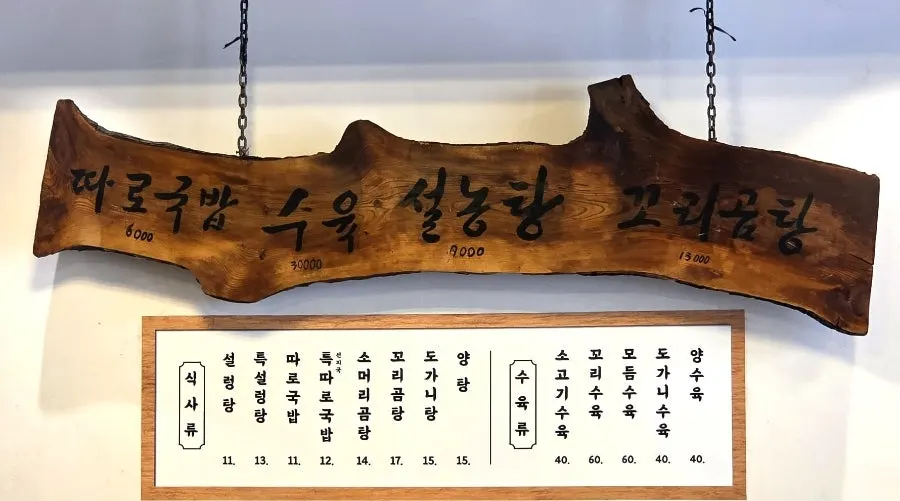 따로국밥
6000
수육
30000
설농탕
9000
꼬리곰탕
13000
식사류
설렁탕
11.
특설렁탕
13.
따로국밥
11.
선지국
특따로국밥
12.
소머리곰탕
14.
꼬리곰탕
17.
도가니탕
15.
양탕
15.
수육류
소고기수육
40.
꼬리수육
60.
모듬수육
60.
도가니수육
40.
양수육
40.